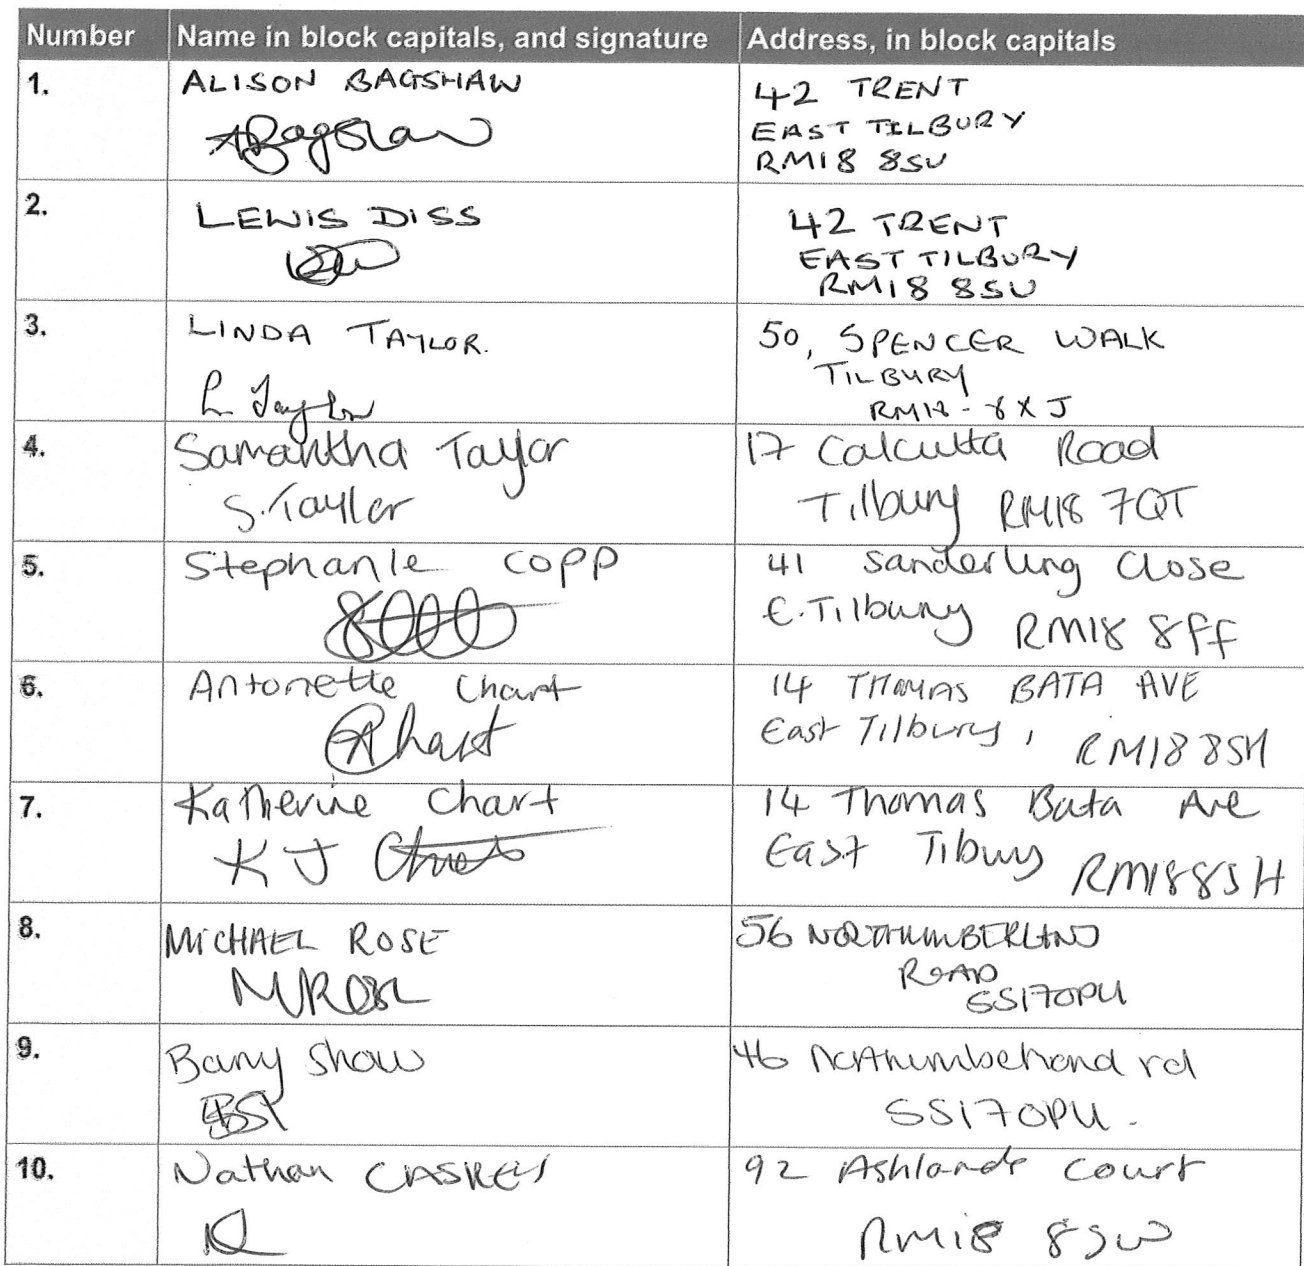 Number Name in block capitals, and signature Address, in block capitals
1. ALISON BAGSHAW 42 TRENT
ABagshaw EAST TILBURY
RM18 8SU
2. LEWIS DISS 42 TRENT
EAST TILBURY
RM18 8SU
3. LINDA TAYLOR. 50, SPENCER WALK
TILBURY
L Taylor RM18 - 8XJ
4. Samantha Taylor 17 Calcutta Road
S. Taylor Tilbury RM18 7QT
5. Stephanie Copp 41 Sanderling Close
E. Tilbury RM18 8FF
6. Antonette Chart 14 THOMAS BATA AVE
Chart East Tilbury, RM18 8SH
7. Katherine Chart 14 Thomas Bata Ave
K J Chart East Tibury RM18 8SH
8. MICHAEL ROSE 56 NORTHUMBERLAND
MROSE ROAD
SS170PU
9. Barry Shaw 46 Northumberland rd
BS SS170PU.
10. Nathan CASKEY 92 Ashlands Court
RM18 8SW